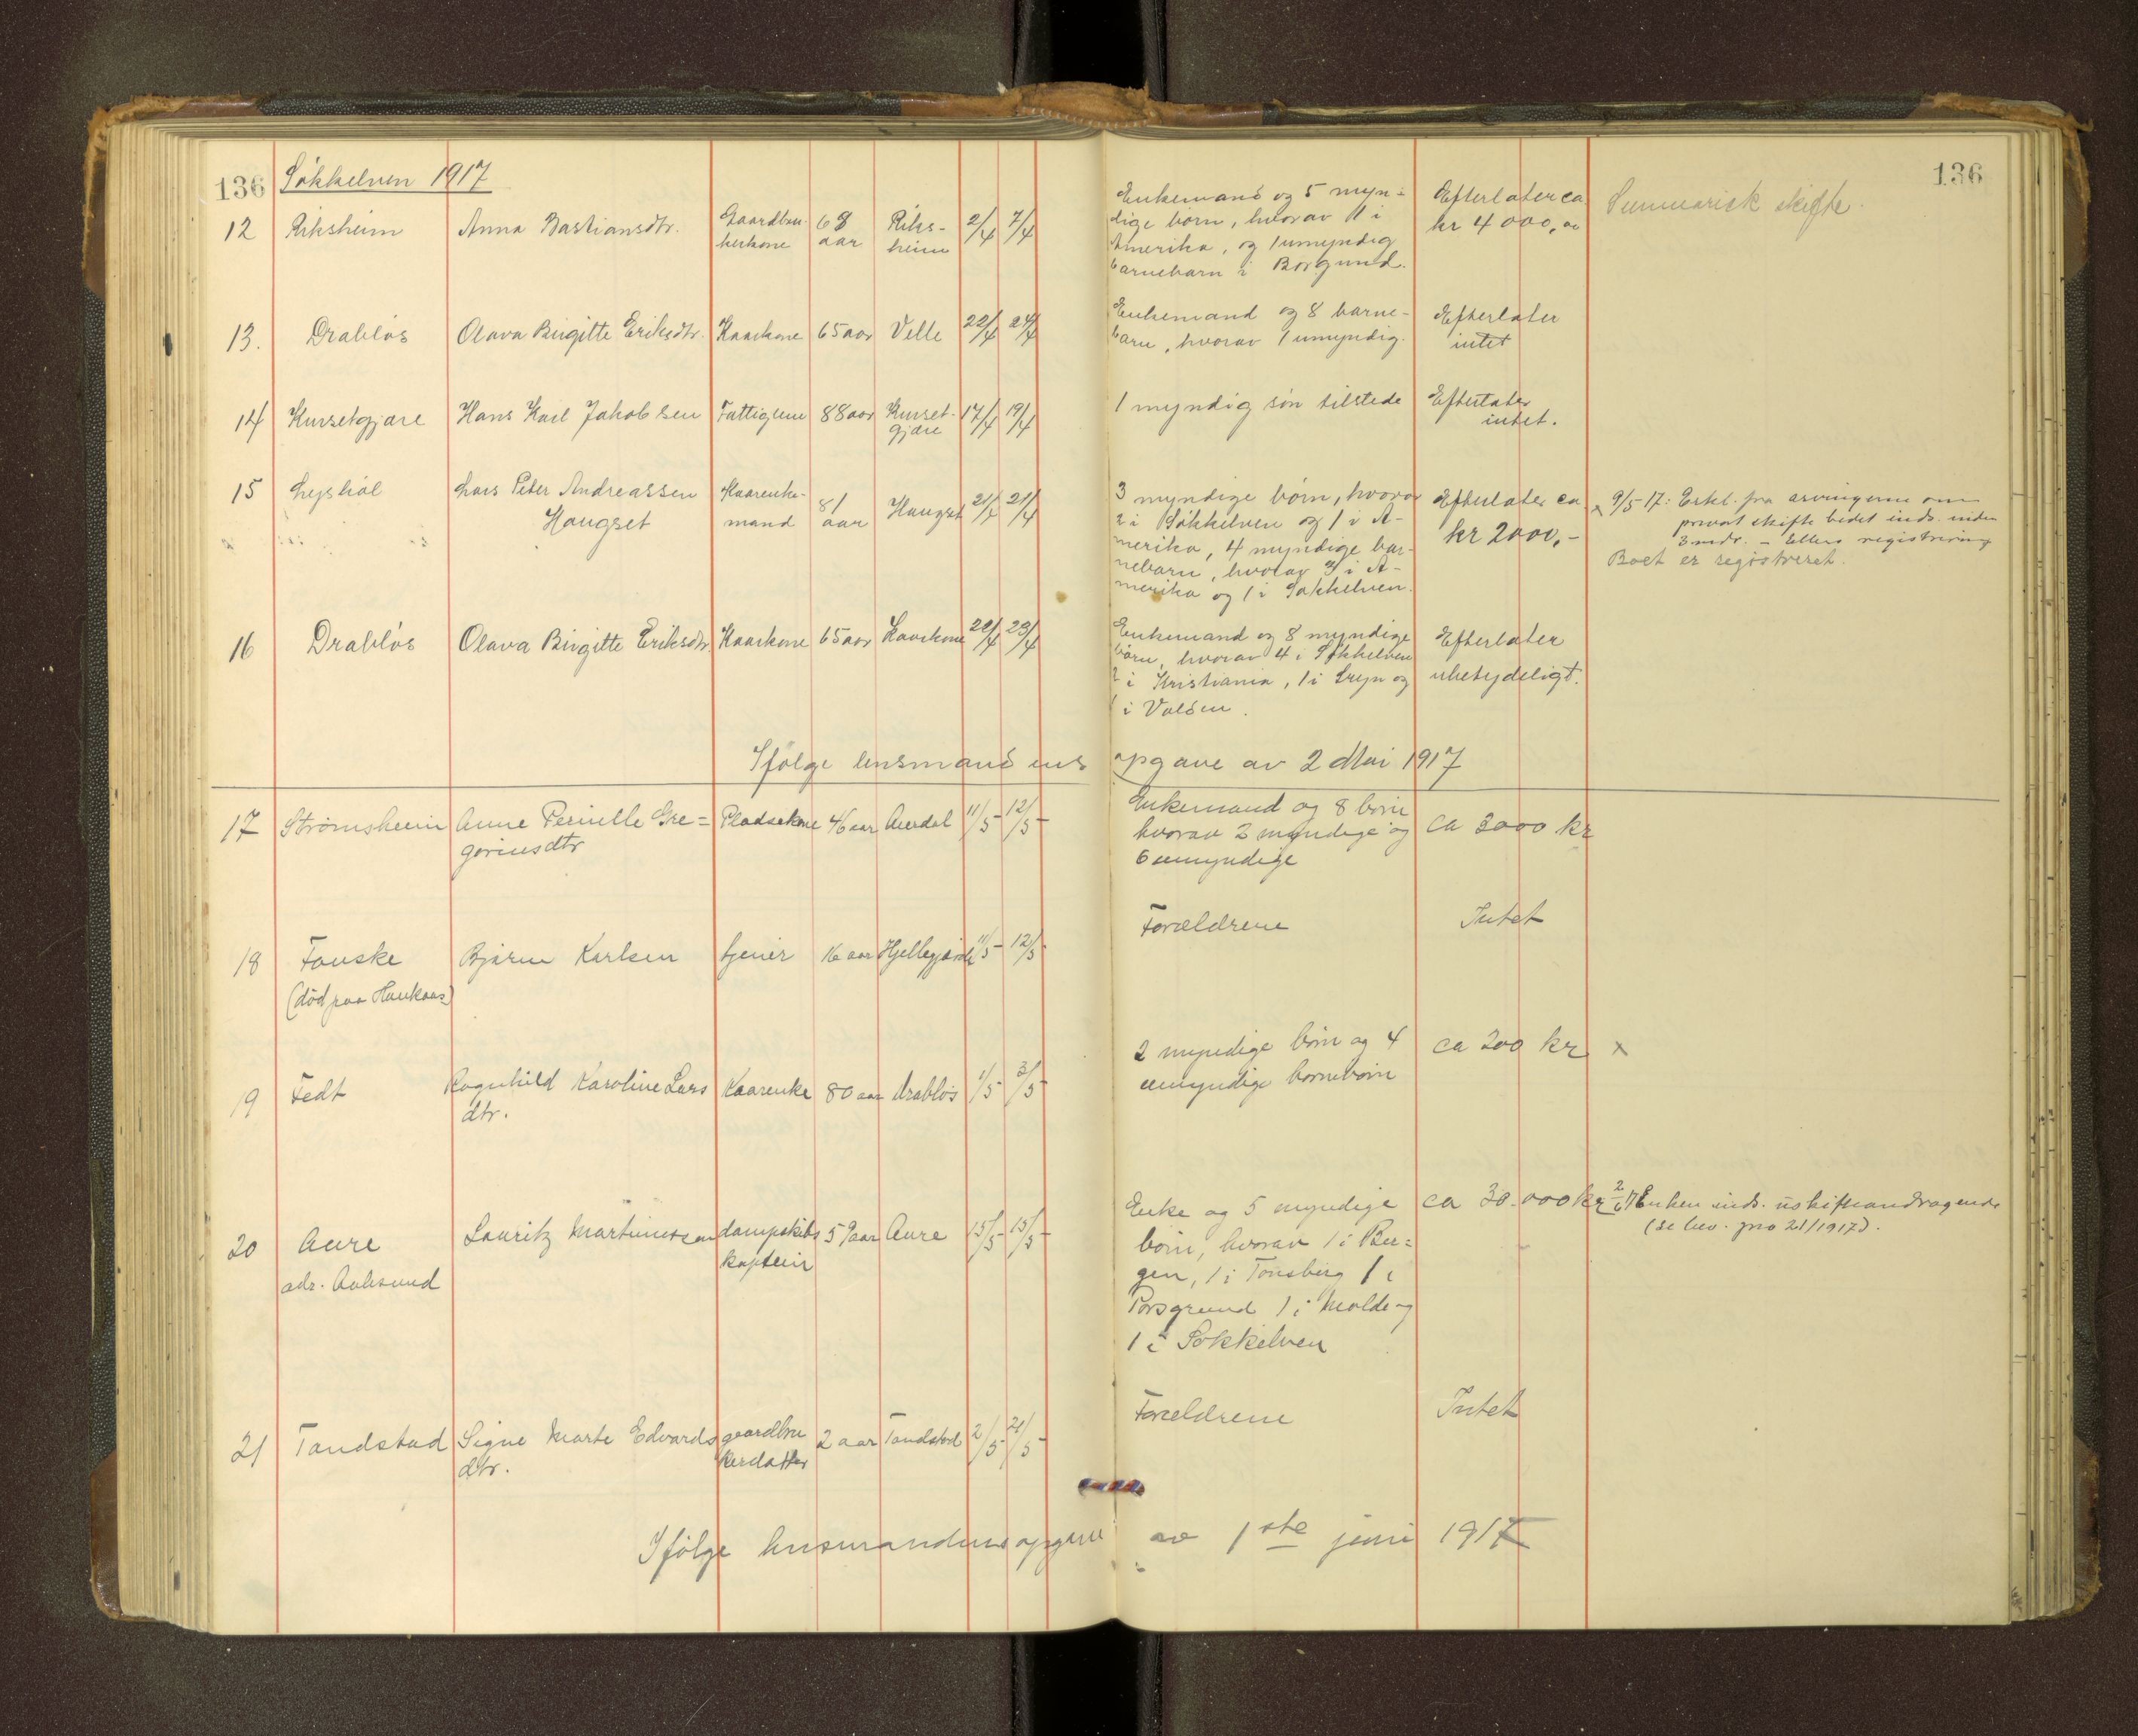 136 Søkkelven 1917 136
12 Riksheim Anna Bastiansdtr. Gaardbru- 68 Riks- 2/4 7/4 Enkemand og 5 myn- Efterlater ca Summarisk skifte.
kerkone aar heim dige børn, hvorav 1 i kr 4000,00
Amerika, og 1 umyndig
barnebarn i Borgund.
13. Drabløs Olava Birgitte Eriksdtr. Kaarkone 65 aar Velle 22/4 24/4 Enkemand og 8 barne- Efterlater
barn, hvorav 1 umyndig. intet
14 Kursetgjære Hans Karl Jakobsen Fattiglem 88 aar Kurset- 17/4 19/4 1 myndig søn tilstede Efterlater
gjære intet.
15 Lyshol Lars Peter Andreassen Kaarenke- 81 Haugset 21/4 21/4 3 myndige børn, hvorav Efterlater ca. x 9/5-17: Erkl. fra arvingerne om
Haugset mand aar 2 i Søkkelven og 1 i A- kr 2000,- privat skifte bedet inds. inden
merika, 4 myndige bar- 3 mdr. - Ellers registrering
nebarn, hvorav 3 i A- Boet er registreret.
merika og 1 i Søkkelven.
16 Drabløs Olava Birgitte Eriksdtr. Kaarkone 65 aar Kaarkone 22/4 23/4 Enkemand og 8 myndige Efterlater
børn, hvorav 4 i Søkkelven ubetydeligt.
2 i Kristiania, 1 i Stryn og
1 i Volden.
Ifølge lensmandens opgave av 2 Mai 1917
17 Strømsheim Anne Pernille Gre= Pladsekone 46 aar Aurdal 11/5 12/5 Enkemand og 8 børn ca 3000 kr
goriusdtr hvorav 2 myndige og
6 umyndige
18 Fauske Bjarne Karlsen tjener 16 aar Hjellegjærde 11/5 12/5 Forældrene Intet
(død paa Haukaas)
19 Fedt Ragnhild Karoline Lars Kaarenke 80 aar Drabløs 1/5 3/5 2 myndige børn og 4 ca 200 kr x
dtr. umyndige børnebørn
20 Aure Lauritz Martinussen dampskibs 59 aar Aure 15/5 15/5 Enke og 5 myndige ca 30.000 kr 2/6 17 Enken inds. uskifteandragende
adr. Aalesund kaptein børn, hvorav 1 i Ber= (se bev. pro 21/1917).
gen, 1 i Tønsberg 1 i
Porsgrund 1 i Molde og
1 i Søkkelven
21 Tandstad Signe Marte Edvards gaardbru 2 aar Tandstad 2/5 21/5 Forældrene Intet
dtr. kerdatter
Ifølge lensmandens opgave av 1ste juni 1917